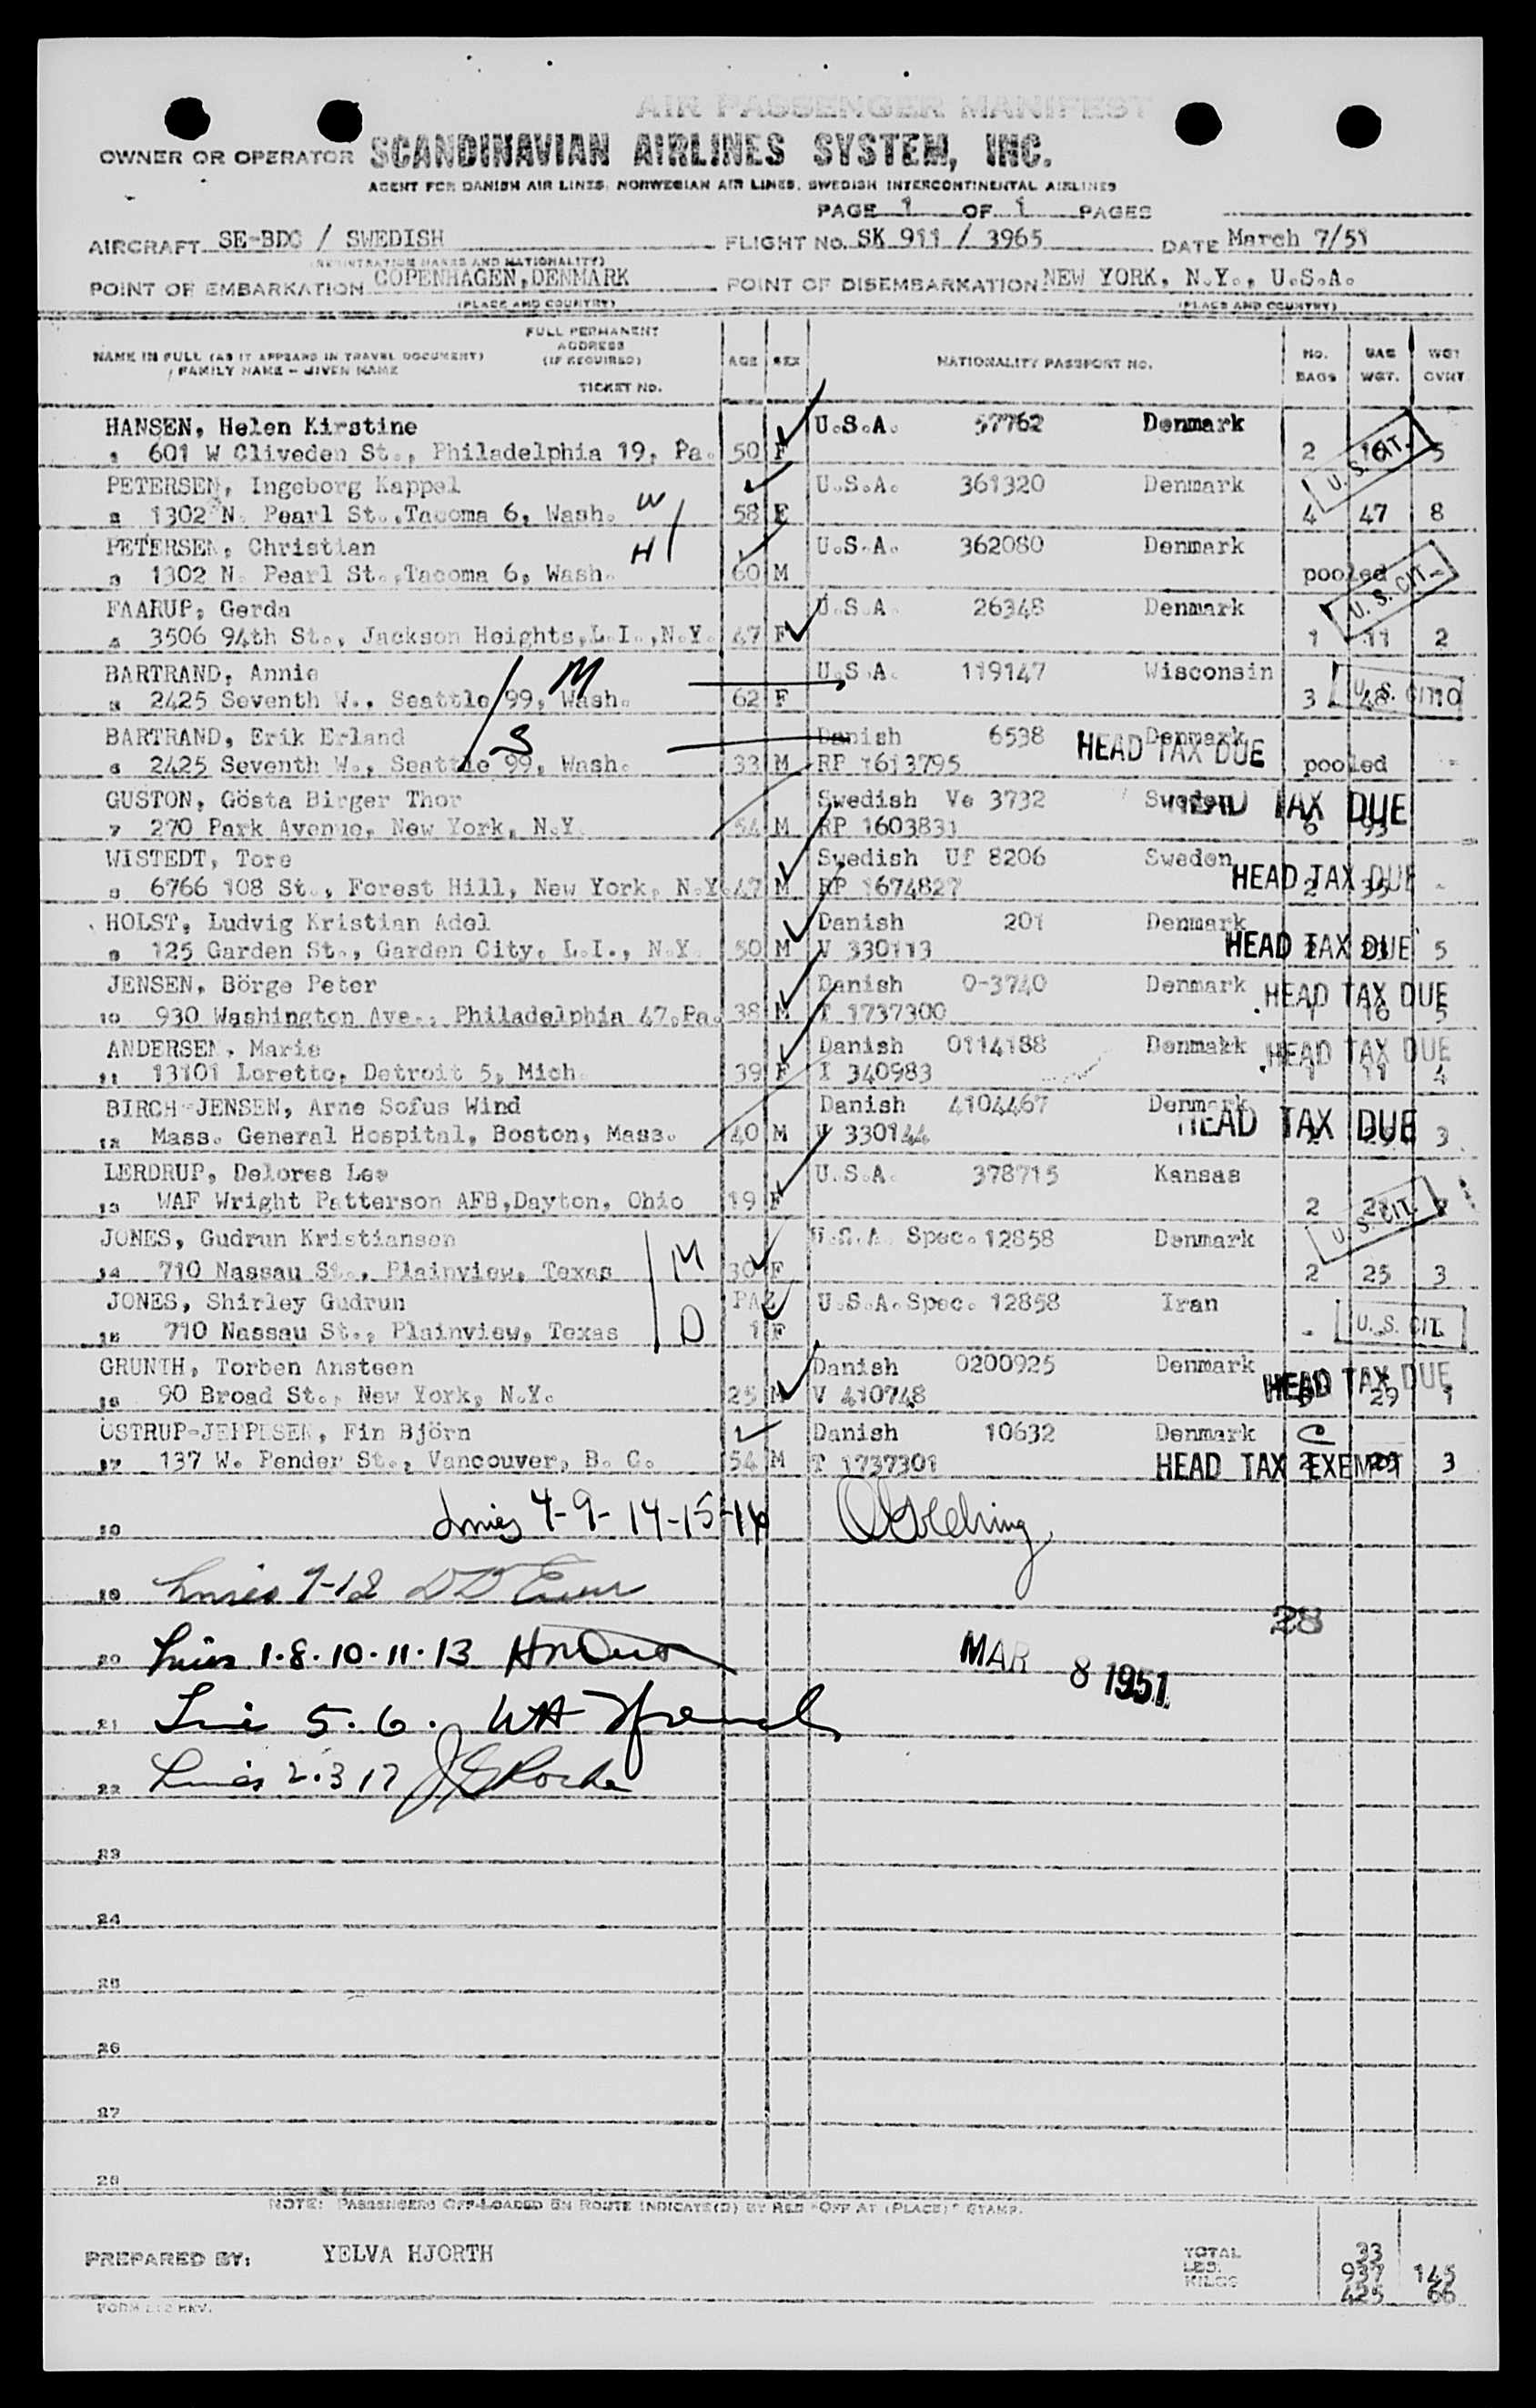 AIR PASSENGER MANIFEST
OWNER OR OPERATOR SCANDINAVIAN AIRLINES SYSTEM, INC.
AGENT FOR DANISH AIR LINES, NORWEGIAN AIR LINES, SWEDISH INTERCONTINENTAL AIRLINES
PAGE 1 OF 1 PAGES
AIRCRAFT SE-BDC / SWEDISH FLIGHT NO. SK 911 / 3965 DATE March 7/51
(REGISTRATION MARKS AND NATIONALITY)
POINT OF EMBARKATION COPENHAGEN, DENMARK POINT OF DISEMBARKATION NEW YORK, N.Y., U.S.A.
(PLACE AND COUNTRY) (PLACE AND COUNTRY)
FULL PERMANENT
ADDRESS
NAME IN FULL (AS IT APPEARS IN TRAVEL DOCUMENT) (IF REQUIRED) AGE SEX NATIONALITY PASSPORT NO. NO. BAG WGT
FAMILY NAME - GIVEN NAME BAGS WGT. OVHT
TICKET NO.
HANSEN, Helen Kirstine U.S.A. 57762 Denmark
1 601 W Cliveden St., Philadelphia 19, Pa. 50 F 2 5 U.S. CIT.
PETERSEN, Ingeborg Kappel W U.S.A. 361320 Denmark
2 1302 N. Pearl St., Tacoma 6, Wash. 58 F 4 47 8
PETERSEN, Christian H U.S.A. 362080 Denmark
3 1302 N. Pearl St., Tacoma 6, Wash. 60 M pooled U. S. CIT.
FAARUP, Gerda U.S.A. 26348 Denmark
4 3506 94th St., Jackson Heights, L.I., N.Y. 47 F 1 11 2
BARTRAND, Annie M U.S.A. 119147 Wisconsin
5 2425 Seventh W., Seattle 99, Wash. 62 F 3 48 10 U. S. CIT.
BARTRAND, Erik Erland S Danish 6538 Denmark HEAD TAX DUE
6 2425 Seventh W., Seattle 99, Wash. 33 M RP 1613795 pooled -
GUSTON, Gösta Birger Thor Swedish Ve 3732 Sweden HEAD TAX DUE
7 270 Park Avenue, New York, N.Y. 54 M RP 1603831 6 93
WISTEDT, Tore Swedish Uf 8206 Sweden HEAD TAX DUE
8 6766 108 St., Forest Hill, New York, N.Y. 47 M RP 1674827 2 35 -
HOLST, Ludvig Kristian Adel Danish 201 Denmark
9 125 Garden St., Garden City, L.I., N.Y. 50 M V 330113 HEAD TAX DUE 5
JENSEN, Börge Peter Danish 0-3740 Denmark HEAD TAX DUE
10 930 Washington Ave., Philadelphia 47, Pa. 38 M T 1737300 1 16 5
ANDERSEN, Marie Danish 0114188 Denmakk HEAD TAX DUE
11 13101 Loretto, Detroit 5, Mich. 39 F I 340983 1 11 4
BIRCH-JENSEN, Arne Sofus Wind Danish 4104467 Denmark HEAD TAX DUE
12 Mass. General Hospital, Boston, Mass. 40 M V 330144 3
LERDRUP, Delores Lee U.S.A. 378715 Kansas
13 WAF Wright Patterson AFB, Dayton, Ohio 19 F 2 U. S. CIT.
JONES, Gudrun Kristiansen M U.S.A. Spec. 12858 Denmark
14 710 Nassau St., Plainview, Texas 30 F 2 25 3
JONES, Shirley Gudrun U.S.A. Spec. 12858 Iran
15 710 Nassau St., Plainview, Texas D 1 F - U. S. CIT.
GRUNTH, Torben Ansteen Danish 0200925 Denmark HEAD TAX DUE
16 90 Broad St., New York, N.Y. 25 M V 410748 29 1
OSTRUP-JEPPESEN, Fin Björn Danish 10632 Denmark C
17 137 W. Pender St., Vancouver, B. C. 54 M T 1737301 HEAD TAX EXEMPT 3
18 Lines 4-9-14-15-16
19 Lines 7-12
28
20 Lines 1.8.10.11.13 MAR 8 1951
21 Line 5.6.
22 Lines 2.3 17 Roche
23
24
25
26
27
28
NOTE: PASSENGERS OFF-LOADED EN ROUTE INDICATE(D) BY RED "OFF AT (PLACE)" STAMP.
PREPARED BY: YELVA HJORTH
TOTAL 33
LBS. 937 145
KILOS 425 66
FORM 212 REV.